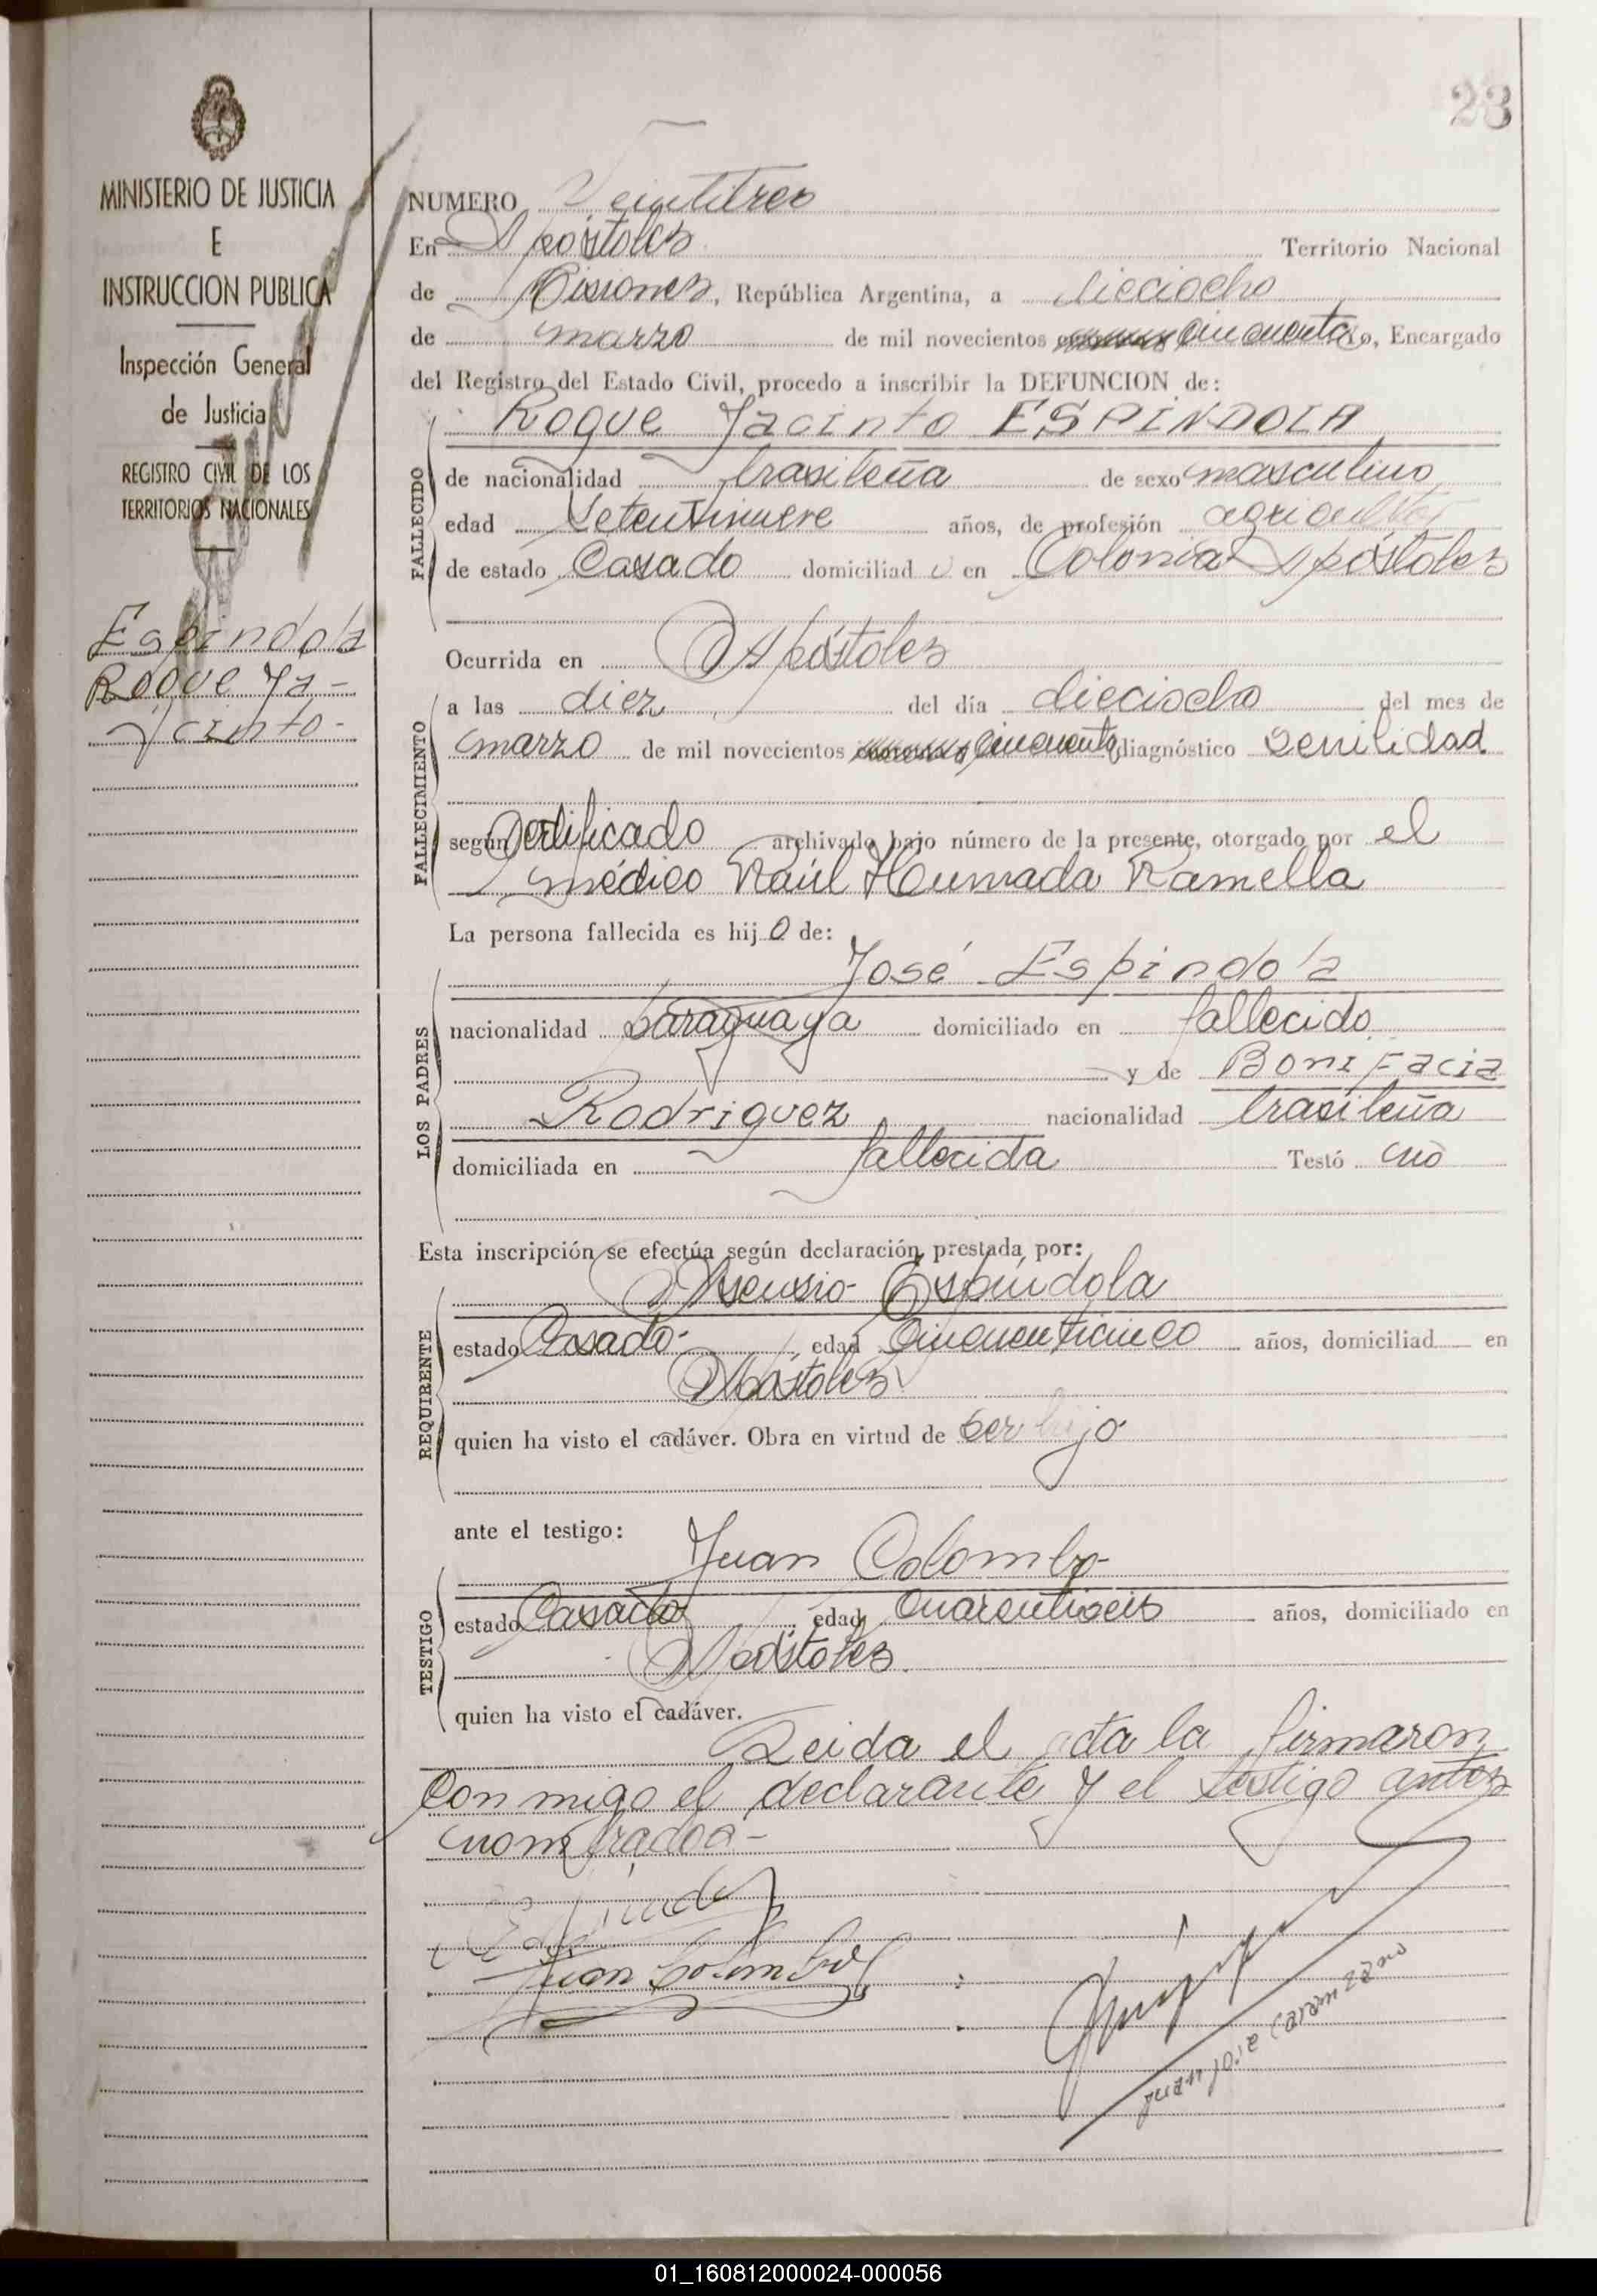 23
MINISTERIO DE JUSTICIA
E
INSTRUCCION PUBLICA
Inspección General
de Justicia
REGISTRO CIVIL DE LOS
TERRITORIOS NACIONALES
Espindola
Roque Ja-
cinto-
NUMERO Veintitres
En Apóstoles Territorio Nacional
de Misiones, República Argentina, a dieciocho
de marzo de mil novecientos cincuenta yo, Encargado
del Registro del Estado Civil, procedo a inscribir la DEFUNCION de:
Roque Jacinto ESPINDOLA
FALLECIDO
de nacionalidad brasileña de sexo masculino
edad Setentinueve años, de profesión agricultor
de estado Casado domiciliad o en Colonia Apóstoles
Ocurrida en Apóstoles
FALLECIMIENTO
a las diez del día dieciocho del mes de
marzo de mil novecientos cincuenta diagnóstico senilidad
según Certificado archivado bajo número de la presente, otorgado por el
médico Raúl Humada Ramella
La persona fallecida es hij o de:
LOS PADRES
José Espindola
nacionalidad paraguaya domiciliado en fallecido
y de Bonifacia
Rodriguez nacionalidad brasileña
domiciliada en fallecida Testó no
Esta inscripción se efectúa según declaración prestada por:
REQUIRENTE
Asensio Espíndola
estado Casado- edad Cincuenticinco años, domiciliad en
Apóstoles
quien ha visto el cadáver. Obra en virtud de ser hijo
ante el testigo:
TESTIGO
Juan Colombo-
estado Casado edad Cuarentiseis años, domiciliado en
Apóstoles
quien ha visto el cadáver.
Leida el acta la firmaron
Con migo el declarante y el testigo antes
nombrados-
Juan Colombo
Juan Jose Caram
01_160812000024-000056